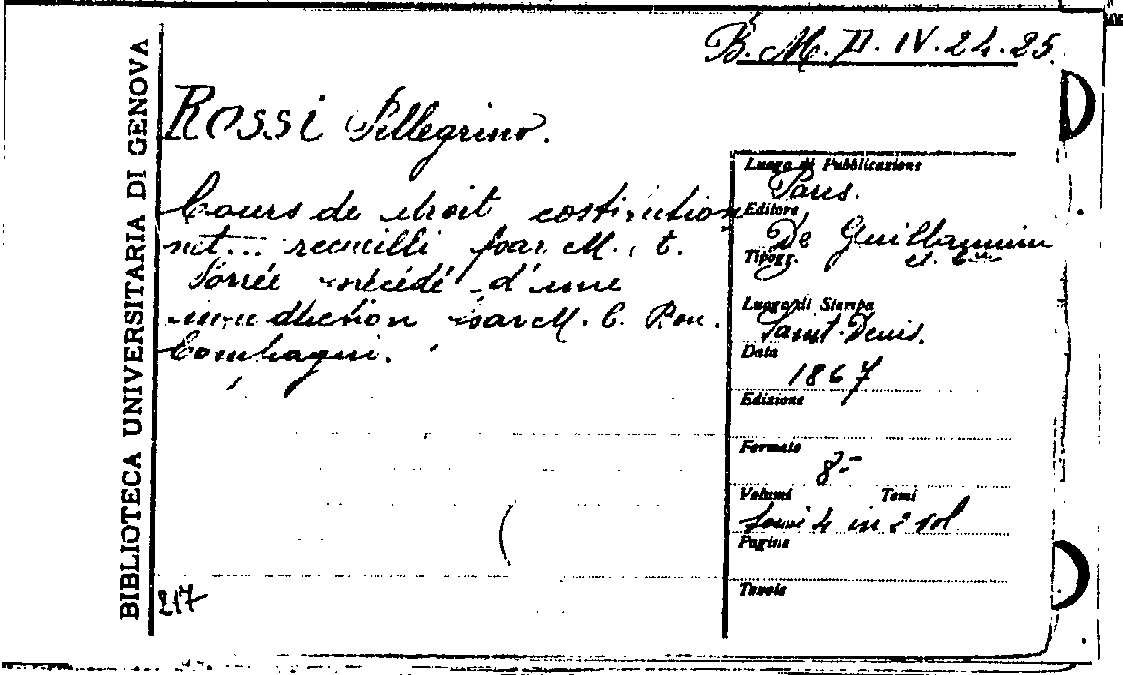 B. M. II. IV. 24. 25.
BIBLIOTECA UNIVERSITARIA DI GENOVA
ROSSI Pellegrino.
Cours de droit costitution
recueilli par M.
Porrée précédé d'une
par M. C. Bon.
Compagni.
217
Luogo di Pubblicazione
Paris.
Editore
De Guillaumin
Tipogr.
et C.ie
Luogo di Stampa
Saint-Denis.
Data
1867
Edizione
Formato
8°
Volumi Tomi
Tomi 4 in 2 vol.
Pagine
Tavole